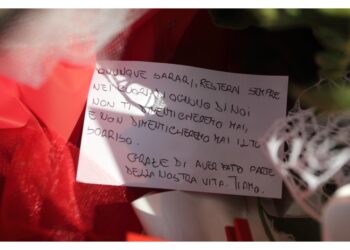 OVUNQUE SARAI, RESTERAI SEMPRE
NEI CUORI DI OGNUNO DI NOI
NON TI DIMENTICHEREMO MAI,
E NON DIMENTICHEREMO MAI IL TUO
SORRISO.
GRAZIE DI AVER FATTO PARTE
DELLA NOSTRA VITA. TI AMO.